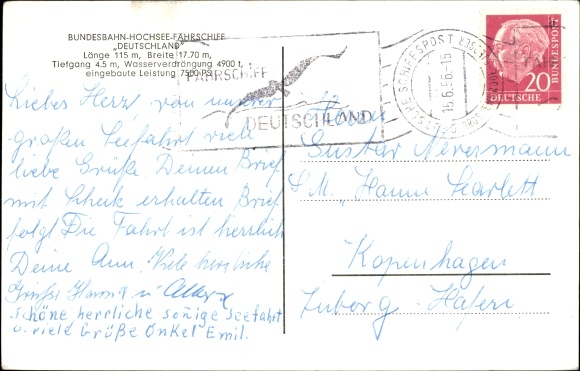 BUNDESBAHN-HOCHSEE-FÄHRSCHIFF
„DEUTSCHLAND"
Länge 115 m, Breite 17.70 m,
Tiefgang 4.5 m, Wasserverdrängung 4900 t,
eingebaute Leistung 7500 PS
Liebes Herz! von unserer
großen Seefahrt viele
liebe Grüße Deinen Brief
mit Scheck erhalten Brief
folgt Die Fahrt ist herrlich
Deine Ann. Viele herzliche
Grüße Hanna u.
schöne herrliche soñige Seefahrt
u. viele Grüße Onkel Emil.
FÄHRSCHIFF
DEUTSCHLAND
DEUTSCHE SCHIFFSPOST
15.6.56-15
DEUTSCHE
BUNDESPOST
20
Herrn
Gustav Nevermann
S.M. „Hanne Scarlett
Kopenhagen
Tuborg-Hafen